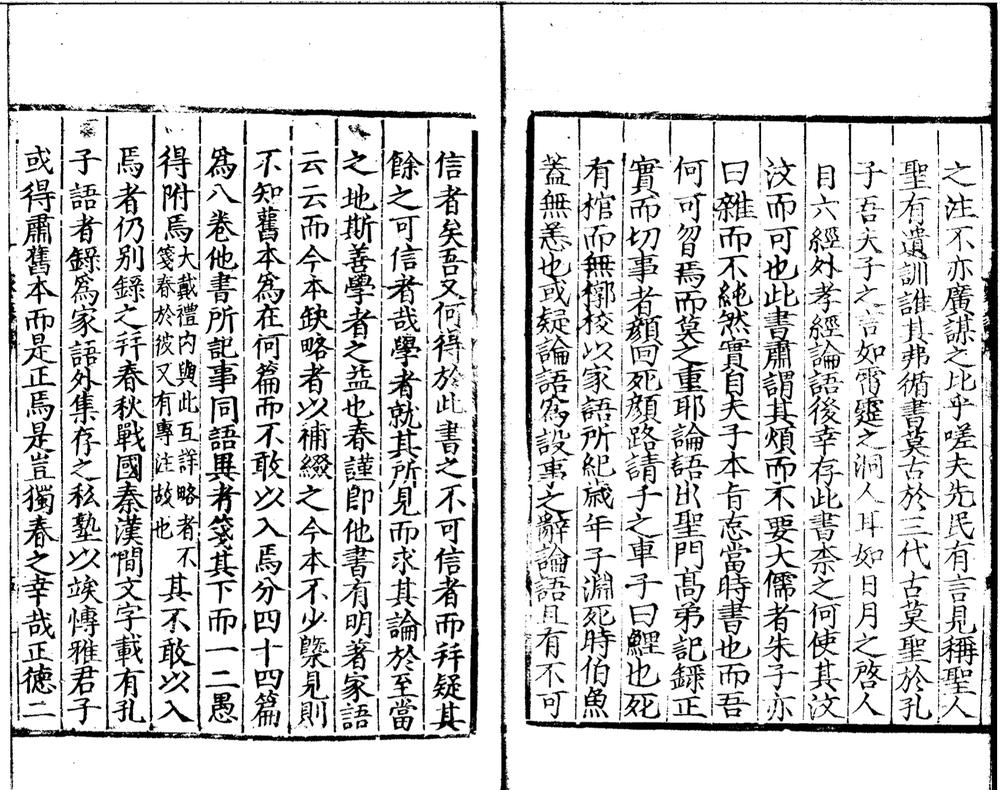 之注不亦廣謀之比乎嗟夫先民有言見稱聖人
聖有遺訓誰其弗循書莫古於三代古莫聖於孔
子吾夫子之言如雷霆之洞人耳如日月之啓人
目六經外孝經論語後幸存此書柰之何使其汶
汶而可也此書肅謂其煩而不要大儒者朱子亦
曰雜而不純然實自夫子本旨忠當時書也而吾
何可曶焉而莫之重耶論語出聖門高弟記録正
實而切事者顔回死顔路請子之車子曰鯉也死
有棺而無槨校以家語所紀歳年子淵死時伯魚
蓋無恙也或疑論語爲設事之辭論語且有不可
信者矣吾又何得於此書之不可信者而幷疑其
餘之可信者哉學者就其所見而求其論於至當
之地斯善學者之益也春謹卽他書有明著家語
云云而今本缺略者以補綴之今本不少槩見則
不知舊本爲在何篇而不敢以入焉分四十四篇
爲八卷他書所記事同語異者箋其下而一二愚
得附焉大戴禮内與此互詳略者不箋春於彼又有專注故也其不敢以入
焉者仍别録之幷春秋戰國秦漢間文字載有孔
子語者録爲家語外集存之私塾以竢慱雅君子
或得肅舊本而是正焉是豈獨春之幸哉正德二